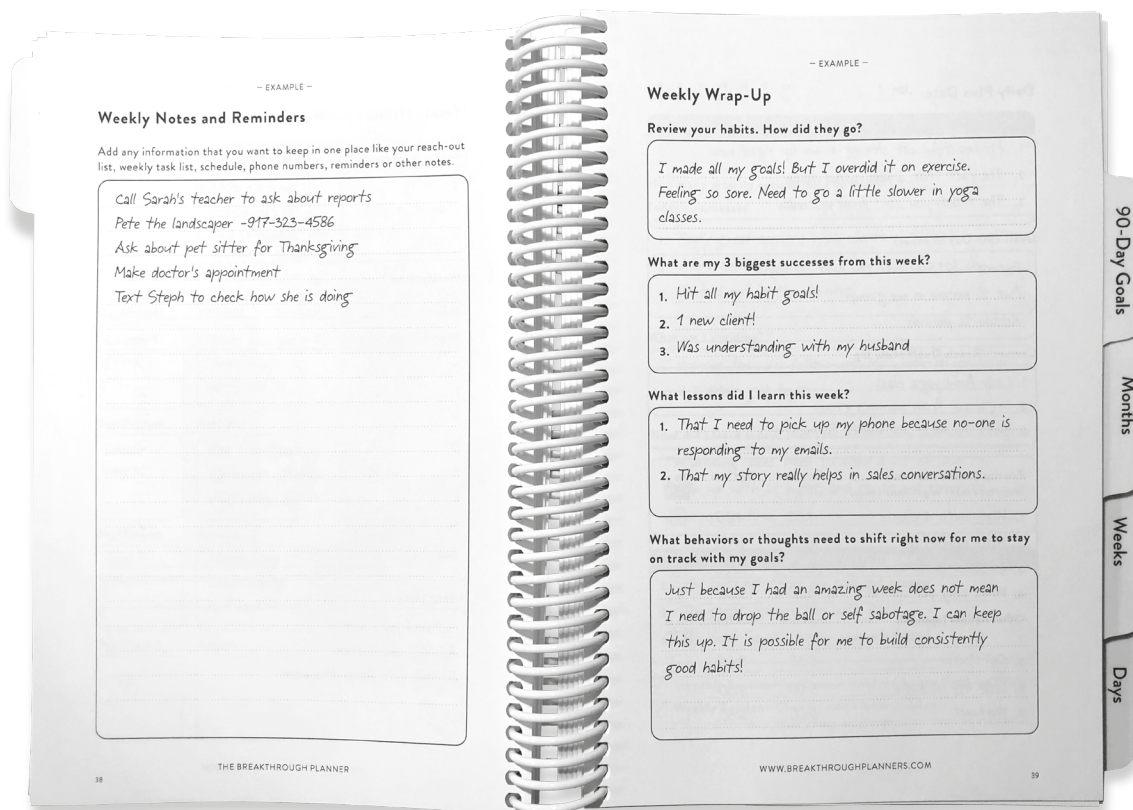 — EXAMPLE —
Weekly Notes and Reminders
Add any information that you want to keep in one place like your reach-out
list, weekly task list, schedule, phone numbers, reminders or other notes.
Call Sarah's teacher to ask about reports
Pete the landscaper -917-323-4586
Ask about pet sitter for Thanksgiving
Make doctor's appointment
Text Steph to check how she is doing
THE BREAKTHROUGH PLANNER
38
— EXAMPLE —
Weekly Wrap-Up
Review your habits. How did they go?
I made all my goals! But I overdid it on exercise.
Feeling so sore. Need to go a little slower in yoga
classes.
What are my 3 biggest successes from this week?
1. Hit all my habit goals!
2. 1 new client!
3. Was understanding with my husband
What lessons did I learn this week?
1. That I need to pick up my phone because no-one is
responding to my emails.
2. That my story really helps in sales conversations.
What behaviors or thoughts need to shift right now for me to stay
on track with my goals?
Just because I had an amazing week does not mean
I need to drop the ball or self sabotage. I can keep
this up. It is possible for me to build consistently
good habits!
WWW.BREAKTHROUGHPLANNERS.COM
39
90-Day Goals
Months
Weeks
Days